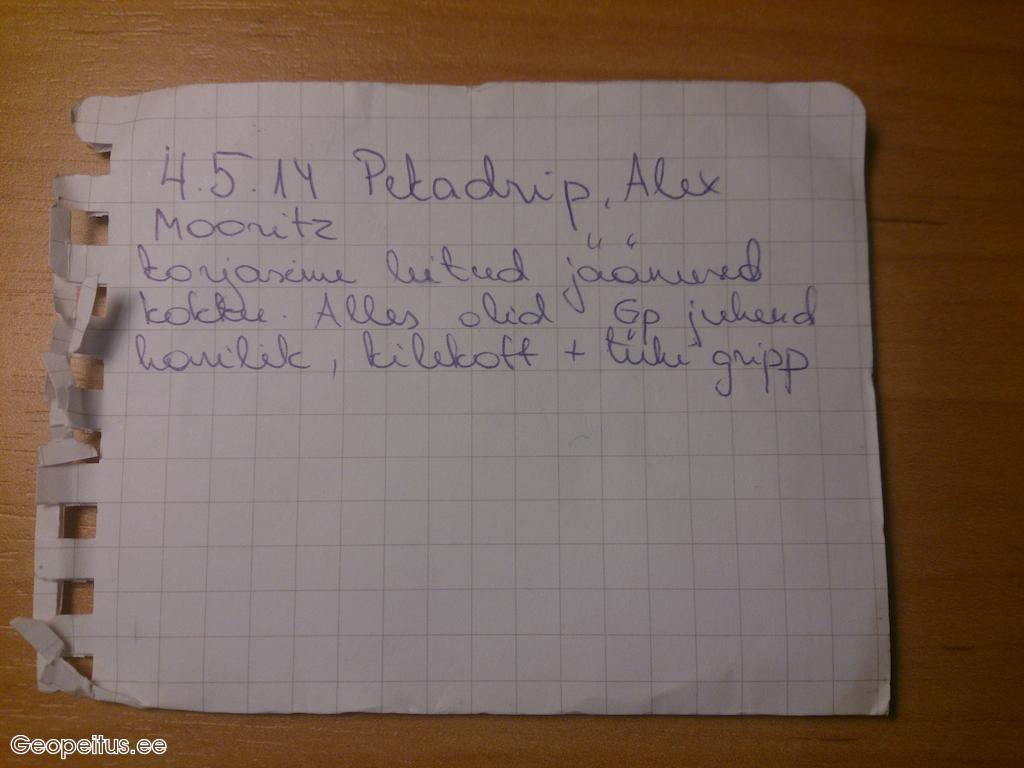 4.5.14 Pekadrip, Alex
Mooritz
korjasime leitud jäänused
kokku. Alles olid Gp juhend
harilik, kilekott + tühi gripp
Geopeitus.ee